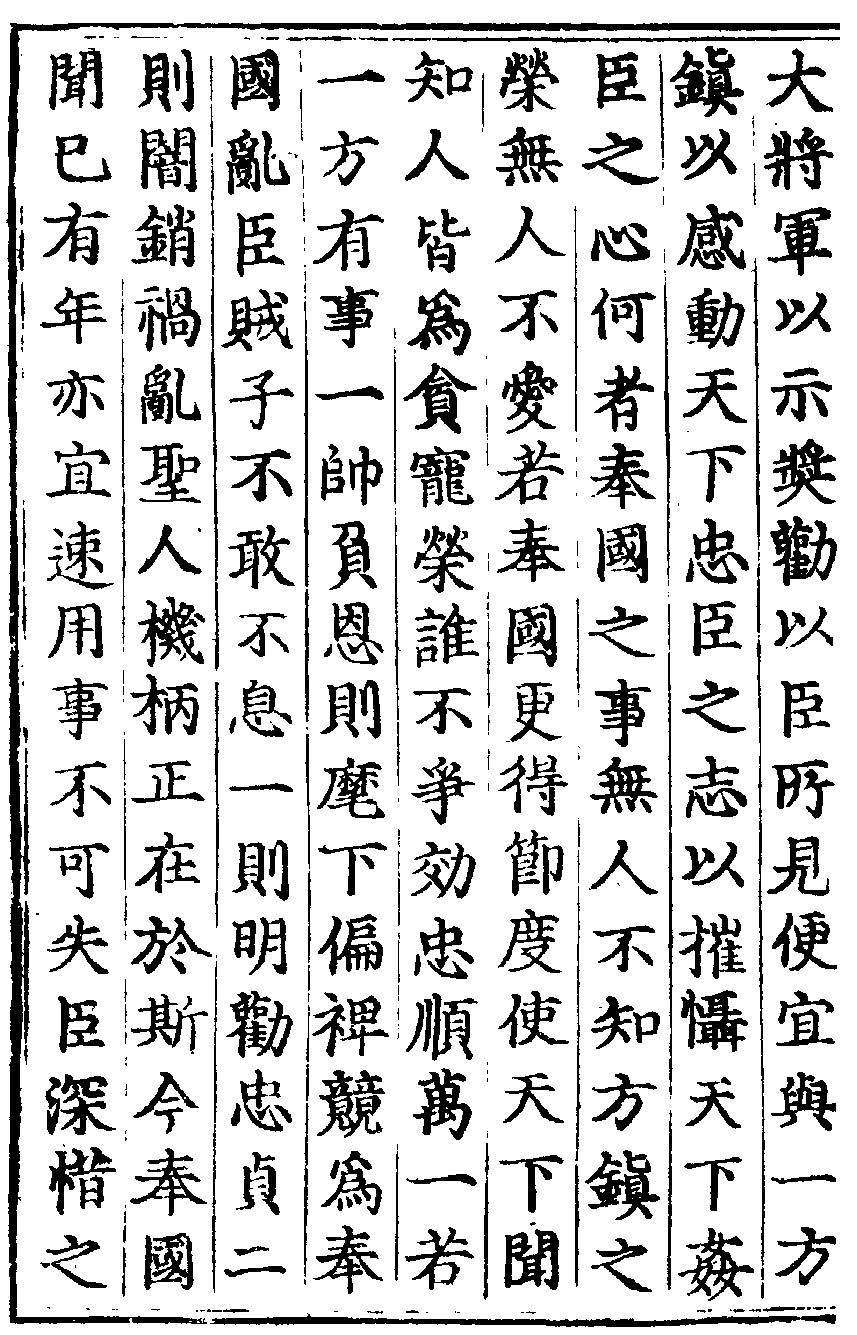 大將軍以示奬勸以臣所見便宜與一方
鎭以感動天下忠臣之志以摧懾天下姦
臣之心何者奉國之事無人不知方鎭之
榮無人不愛若奉國更得節度使天下聞
知人皆爲貪寵榮誰不爭効忠順萬一若
一方有事一帥負恩則麾下偏裨競爲奉
國亂臣賊子不敢不息一則明勸忠貞二
則闇銷禍亂聖人機柄正在於斯今奉國
聞巳有年亦宜速用事不可失臣深惜之